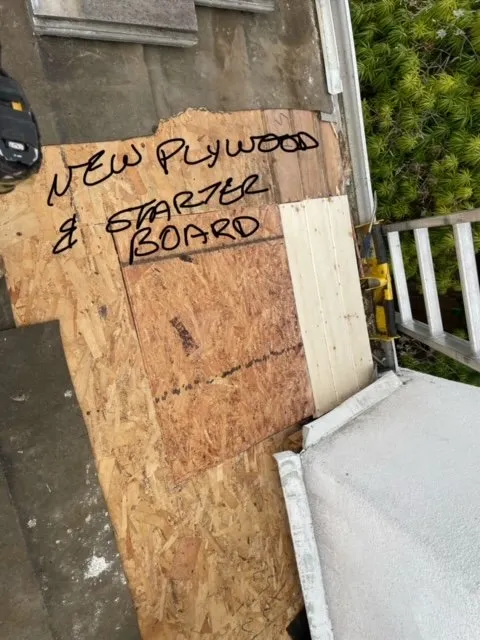 NEW PLYWOOD
& STARTER
BOARD